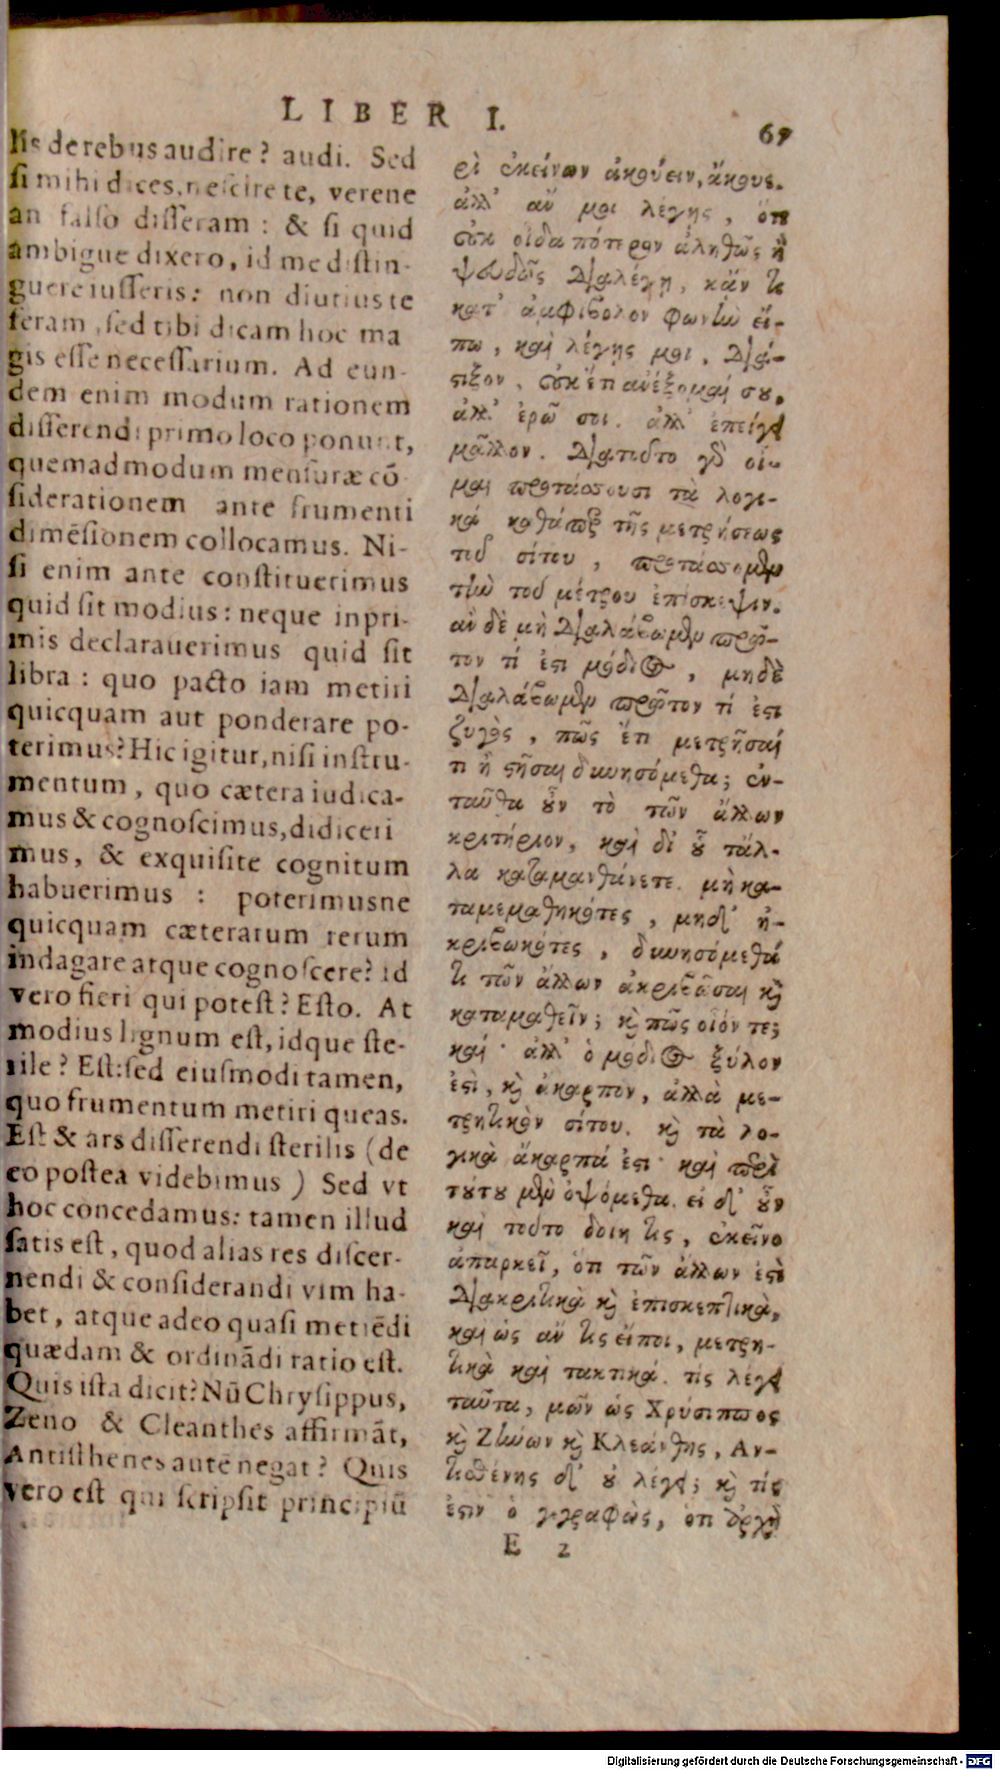 LIBER I.
67
lis de rebus audire? audi. Sed
si mihi dices, nescire te, verene
an falso disseram: & si quid
ambigue dixero, id me distin-
guere iusseris: non diutius te
feram, sed tibi dicam hoc ma
gis esse necessarium. Ad eun-
dem enim modum rationem
disserendi primo loco ponunt,
quemadmodum mensuræ cō-
siderationem ante frumenti
dimēsionem collocamus. Ni-
si enim ante constituerimus
quid sit modius: neque inpri-
mis declarauerimus quid sit
libra: quo pacto iam metiri
quicquam aut ponderare po-
terimus? Hic igitur, nisi instru-
mentum, quo cætera iudica-
mus & cognoscimus, didiceri
mus, & exquisite cognitum
habuerimus: poterimusne
quicquam cæterarum rerum
indagare atque cognoscere? id
vero fieri qui potest? Esto. At
modius lignum est, idque ste-
rile? Est: sed eiusmodi tamen,
quo frumentum metiri queas.
Est & ars disserendi sterilis (de
eo postea videbimus) Sed vt
hoc concedamus: tamen illud
satis est, quod alias res discer-
nendi & considerandi vim ha-
bet, atque adeo quasi metiēdi
quædam & ordinādi ratio est.
Quis ista dicit? Nū Chrysippus,
Zeno & Cleanthes affirmāt,
Antisthenes autē negat? Quis
vero est qui scripsit principiū
ρὶ ἐκείνων ἀκούειν, ἄκουε.
ἀλλ' ἄν μοι λέγης, ὅτι
οὐκ οἶδα πότερον ἀληθῶς ἢ
ψευδῶς διαλέγη, κἄν τι
κατ' ἀμφίβολον φωνὴν εἴ-
πω, καὶ λέγης μοι, διά-
στιξον, οὐκ ἔτι ἀνέξομαί σου,
ἀλλ' ἐρῶ σοι. ἀλλ' ἐπείγει
μᾶλλον. διατοῦτο γὰρ οἶ-
μαι προτάσσουσι τὰ λογι-
κά καθάπερ τῆς μετρήσεως
τοῦ σίτου, προτάσσομεν
τὴν τοῦ μέτρου ἐπίσκεψιν.
ἂν δὲ μὴ διαλάβωμεν πρῶ-
τον τί ἐστι μόδιος, μηδὲ
διαλάβωμεν πρῶτον τί ἐστι
ζυγὸς, πῶς ἔτι μετρῆσαί
τι ἢ στῆσαι δυνησόμεθα; ἐν-
ταῦθα οὖν τὸ τῶν ἄλλων
κριτήριον, καὶ δι' οὗ τἄλ-
λα καταμανθάνετε. μὴ κα-
ταμεμαθηκότες, μηδ' ἠ-
κριβωκότες, δυνησόμεθά
τι τῶν ἄλλων ἀκριβᾶσαι καὶ
καταμαθεῖν; καὶ πῶς οἷόν τε;
καί· ἀλλ' ὁ μόδιος ξύλον
ἐστὶ, καὶ ἄκαρπον, ἀλλὰ με-
τρητικὸν σίτου. καὶ τὰ λο-
γικὰ ἄκαρπά ἐστι· καὶ περὶ
τούτου μὲν ὀψόμεθα. εἰ δ' οὖν
καὶ τοῦτο δοίη τις, ἐκεῖνο
ἀπαρκεῖ, ὅτι τῶν ἄλλων ἐστὶ
διακριτικὰ καὶ ἐπισκεπτικὰ,
καὶ ὡς ἄν τις εἴποι, μετρη-
τικὰ καὶ τακτικά. τίς λέγει
ταῦτα, μῶν ὡς Χρύσιππος
καὶ Ζήνων καὶ Κλεάνθης, Αν-
τισθένης δ' οὐ λέγει; καὶ τίς
ἐστιν ὁ γεγραφὼς, ὅτι ἀρχὴ
E 2
Digitalisierung gefördert durch die Deutsche Forschungsgemeinschaft - DFG